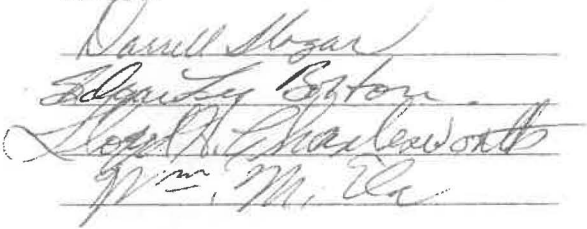 Darrell Slogar
Edgar Ley Bolton
Lloyd H. Charlesworth
Wm. M. Ela